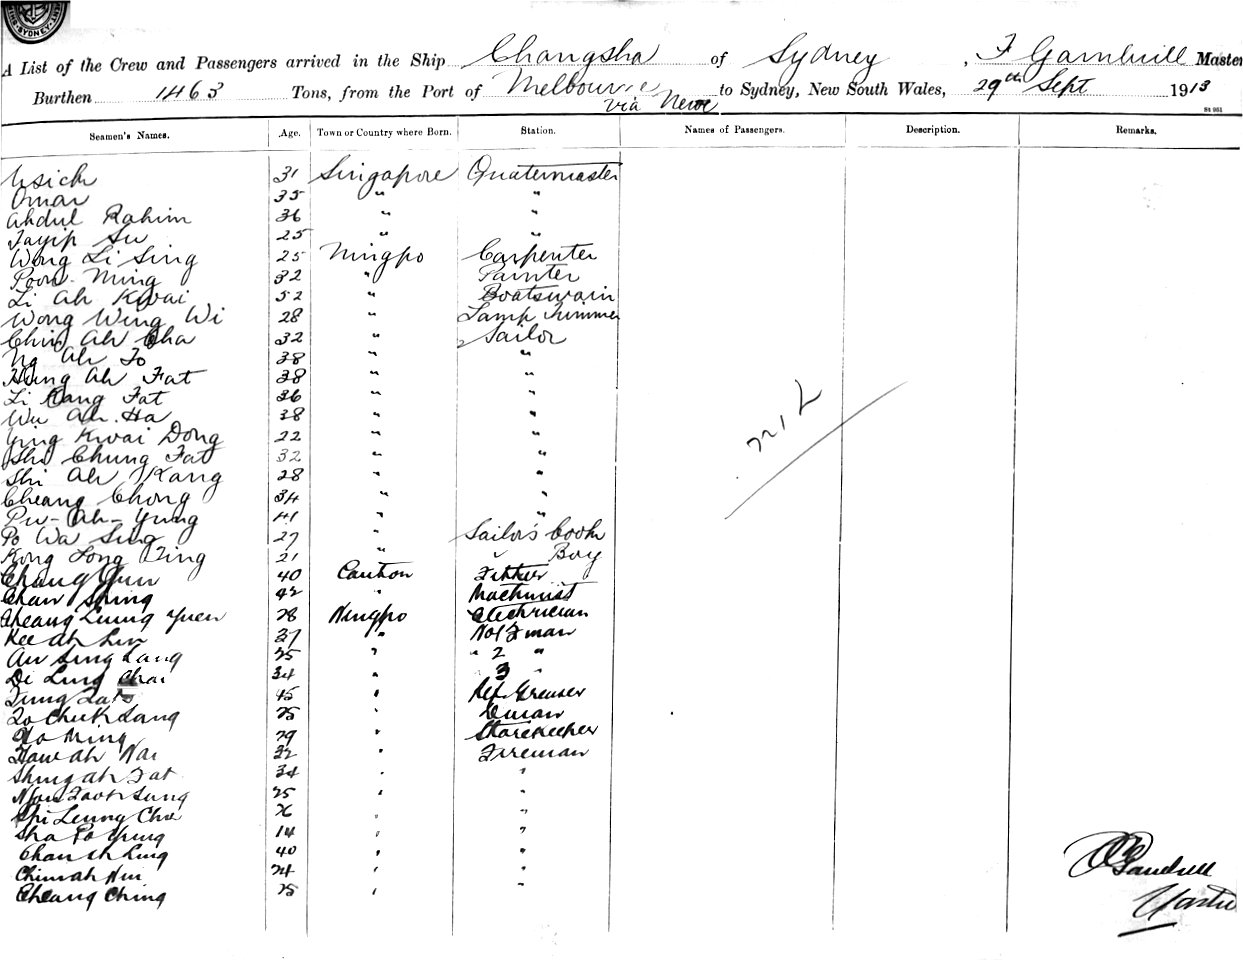 SYDNEY
A List of the Crew and Passengers arrived in the Ship Changsha of Sydney, F Gambrill Master
Burthen 1463 Tons, from the Port of Melbourne via New to Sydney, New South Wales, 29th Sept 1913
St 951
Seamen's Names. Age. Town or Country where Born. Station. Names of Passengers. Description. Remarks.
31 Singapore Quatermaster
Omar 35 " "
Abdul Rahim 36 " "
Tayip Su 25 " "
Wong Li Sing 25 Ningpo Carpenter
Poon Ming 32 " Painter
Li Ah Kwai 52 " Boatswain
Wong Wing Wi 28 " Lamp Trimmer
Chin Ah Cha 32 " Sailor
Ng Ah To 38 " "
Hung Ah Fat 38 " "
Li Kang Fat 36 " "
Wu Ah Ha 38 " "
Ying Kwai Dong 22 " "
Shi Chung Fat 32 " "
Shi Ah Kang 28 " "
Cheang Chong 34 " "
Pu-Ah-Yung 41 " "
Po Wa Sing 27 " Sailor's Cook
Kong Long Ting 21 " " Boy
Chang Yun 40 Canton Fitter
Chan Shing 42 " Machinist
Cheang Leung Yuen 28 Ningpo Electrician
Kee Ah Lin 37 " No 1 F man
Au Sing Lang 25 " " 2 "
Di Ling Chai 34 " 3 "
45 " Ref Greaser
Lo Cheuk Sang 25 "
Ho Ming 29 " Storekeeper
Ah Kai 32 " Fireman
Shing ah Fat 34 " "
25 " "
Shi Leung Choi 26 " "
Sha Po Yung 14 " "
Chan ah Ling 40 " "
Chin ah 24 " "
Cheang Ching 25 " "
2212
Gambrill
Master